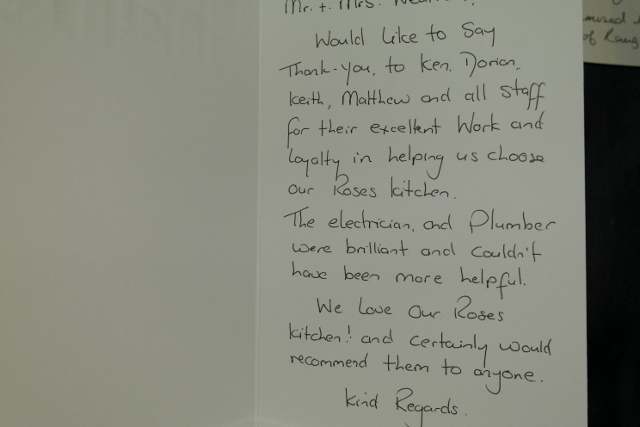 Mr. + Mrs.
Would like to Say
Thank-you, to Ken, Dorian,
Keith, Matthew and all Staff
for their excellent Work and
loyalty in helping us choose
our Roses kitchen.
The electrician, and Plumber
were brilliant and couldn't
have been more helpful.
We Love Our Roses
kitchen! and certainly would
recommend them to anyone.
Kind Regards.
of